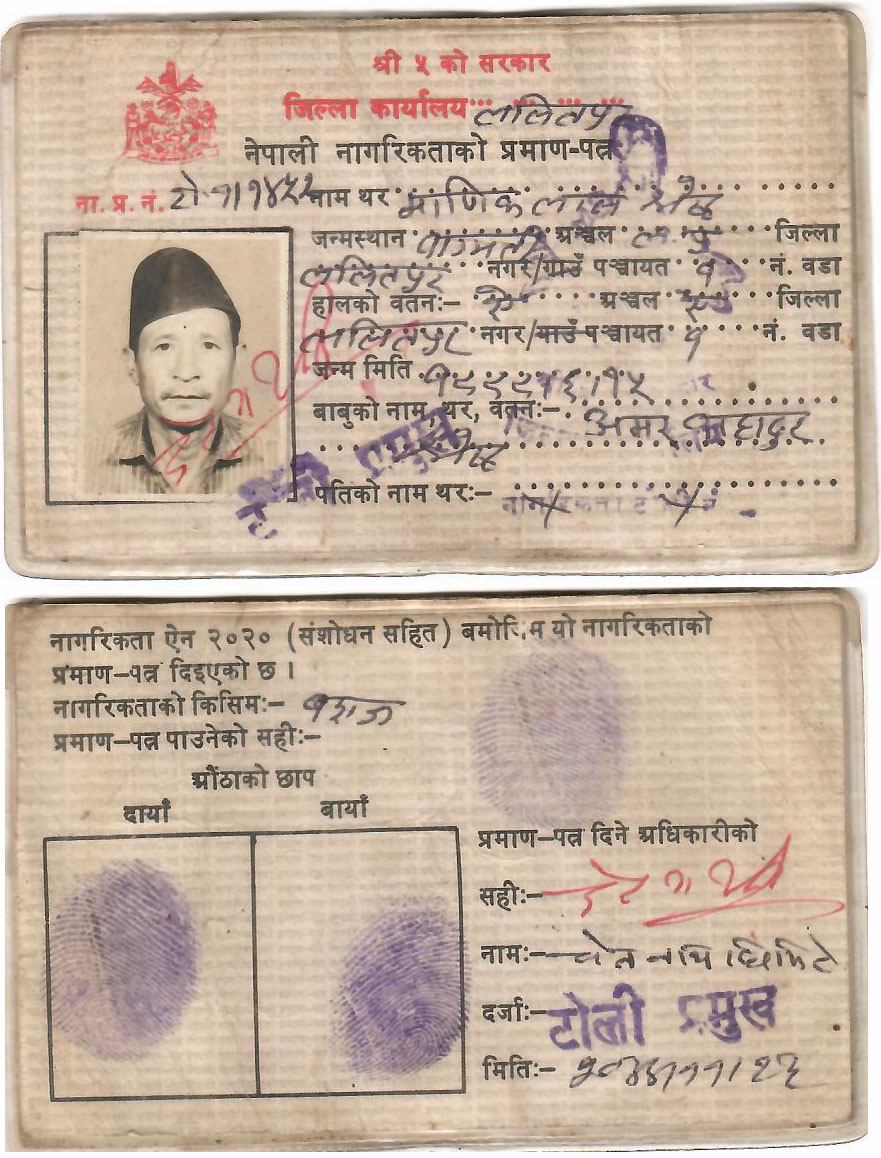 श्री ५ को सरकार
जिल्ला कार्यालय ललितपुर
नेपाली नागरिकताको प्रमाण-पत्र
ना. प्र. नं. नाम थर माणिक लाल श्रेष्ठ
जन्मस्थान वाग्मती अञ्चल ल.पु. जिल्ला
ललितपुर नगर/गाउँ पञ्चायत नं. वडा
हालको वतन:- ऐ अञ्चल ऐ जिल्ला
ललितपुर नगर/गाउँ पञ्चायत नं. वडा
जन्म मिति
बाबुको नाम, थर, वतन:- अमर बहादुर
श्रेष्ठ
टोली प्रमुख
पतिको नाम थर:- × ×
नागरिकता ऐन २०२० (संशोधन सहित) बमोजिम यो नागरिकताको
प्रमाण-पत्र दिइएको छ ।
नागरिकताको किसिम:- वंशज
प्रमाण-पत्र पाउनेको सही:-
औंठाको छाप
दायाँ बायाँ
प्रमाण-पत्र दिने अधिकारीको
सही:-
नाम:- घिमिरे
दर्जा:- टोली प्रमुख
मिति:-